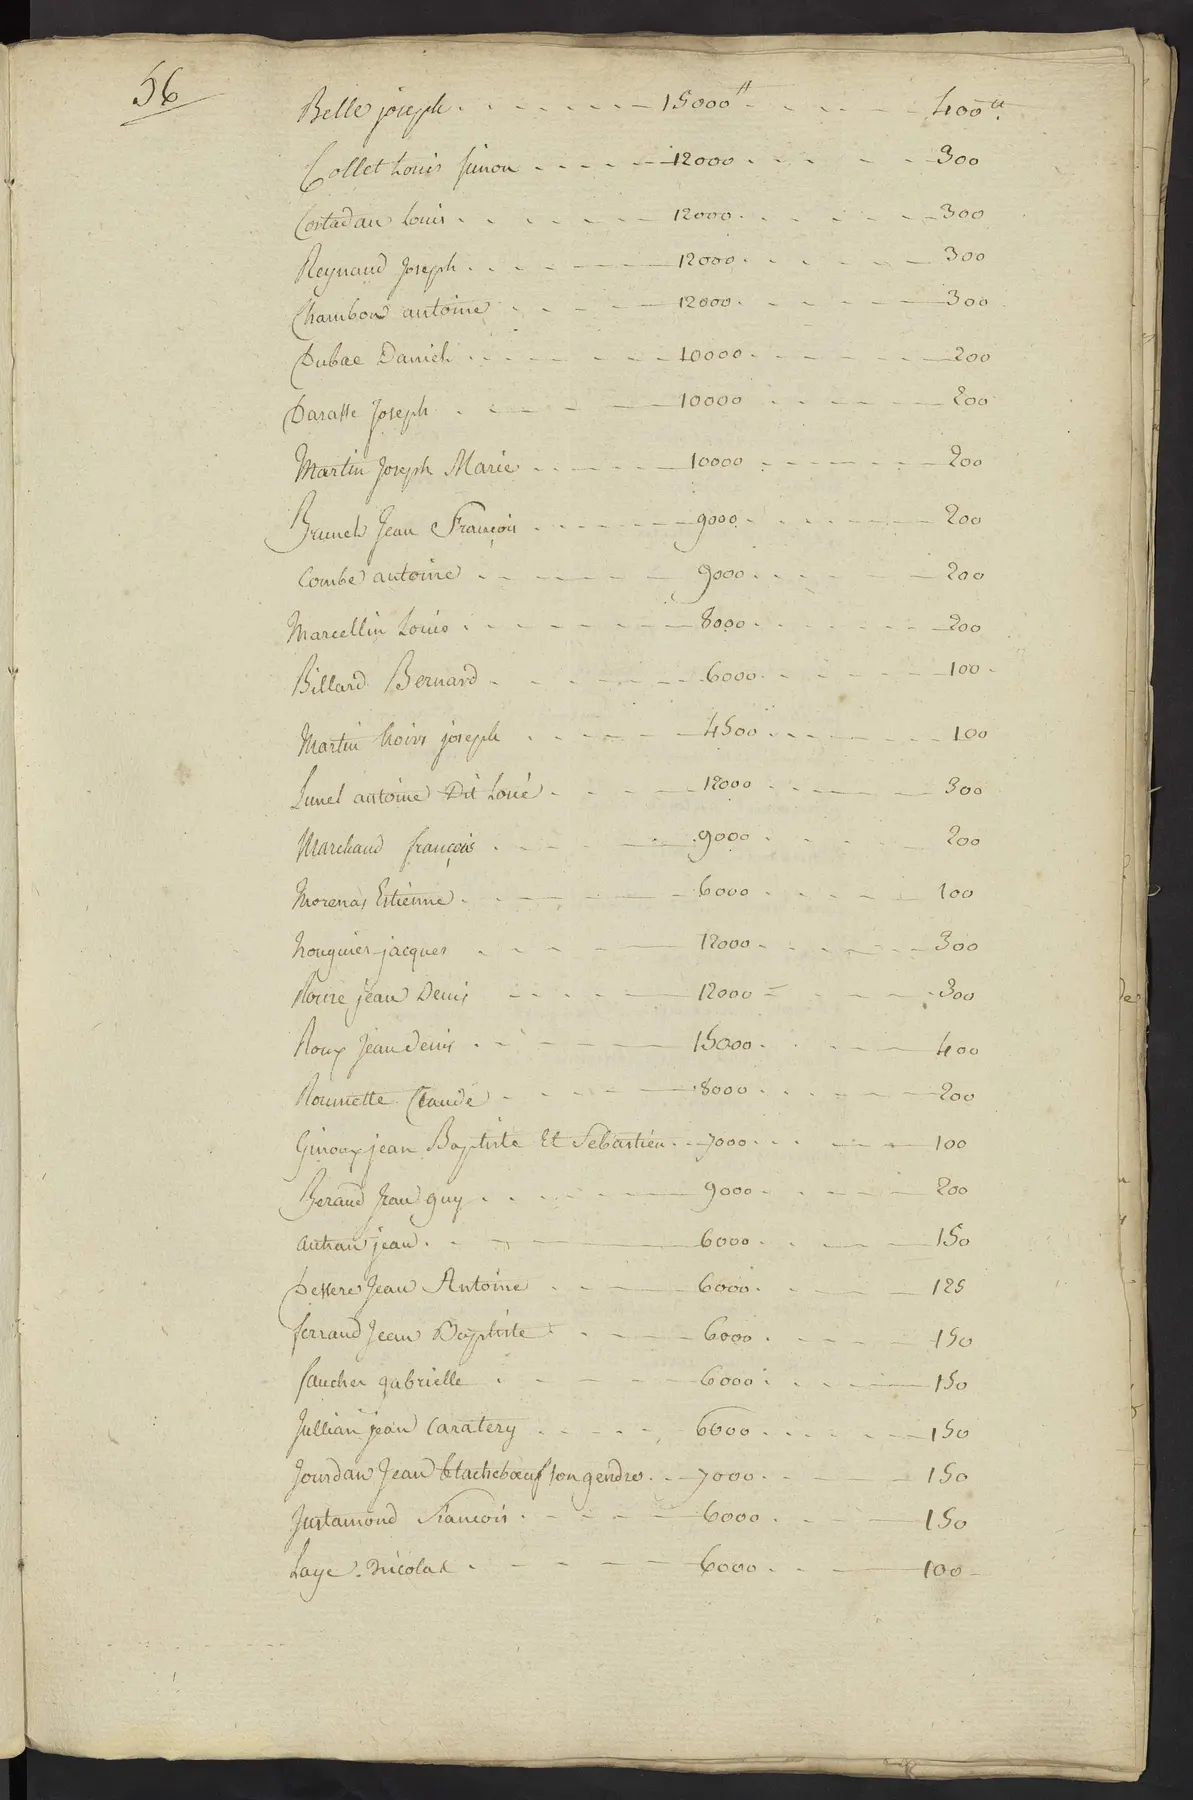 56
Belle joseph 15000ᵗᵗ 400ᵗᵗ
Collet Louis Simon 12000 300
Costadau Louis 12000 300
Reynaud Joseph 12000 300
Chambon antoine 12000 300
Dubae Daniel 10000 200
Darasse Joseph 10000 200
Martin Joseph Marie 10000 200
Brunel Jean François 9000 200
Combe antoine 9000 200
Marcellin Louis 8000 200
Billard Bernard 6000 100
Martin hoirs joseph 4500 100
Lunel antoine Dit Loué 12000 300
Marchand françois 9000 200
Morenas Estienne 6000 100
Nouguier jacques 12000 300
Roure jean Denis 12000 300
Roux Jean denis 15000 400
Roumette Claude 8000 200
Giroux jean Baptiste Et Sebastien 7000 100
Beraud Jean guy 9000 200
autran jean 6000 150
Dessere Jean Antoine 6000 125
ferraud Jean Baptiste 6000 150
faucher gabrielle 6000 150
Jullian jean Caratery 6000 150
Jourdan Jean Et tacheboeuf son gendre 7000 150
Justamond François 6000 150
Laye Nicolas 6000 100